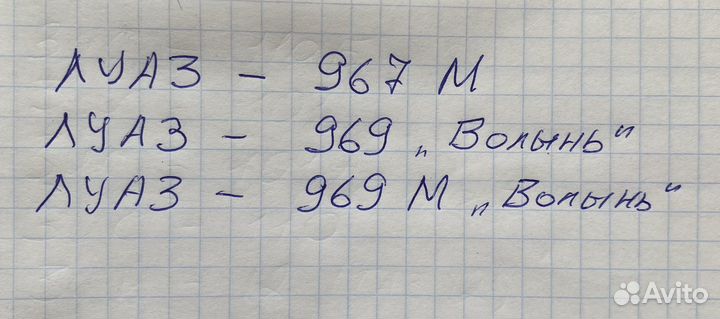 ЛУАЗ - 967 М
ЛУАЗ - 969 „Волынь"
ЛУАЗ - 969 М „Волынь"
Avito